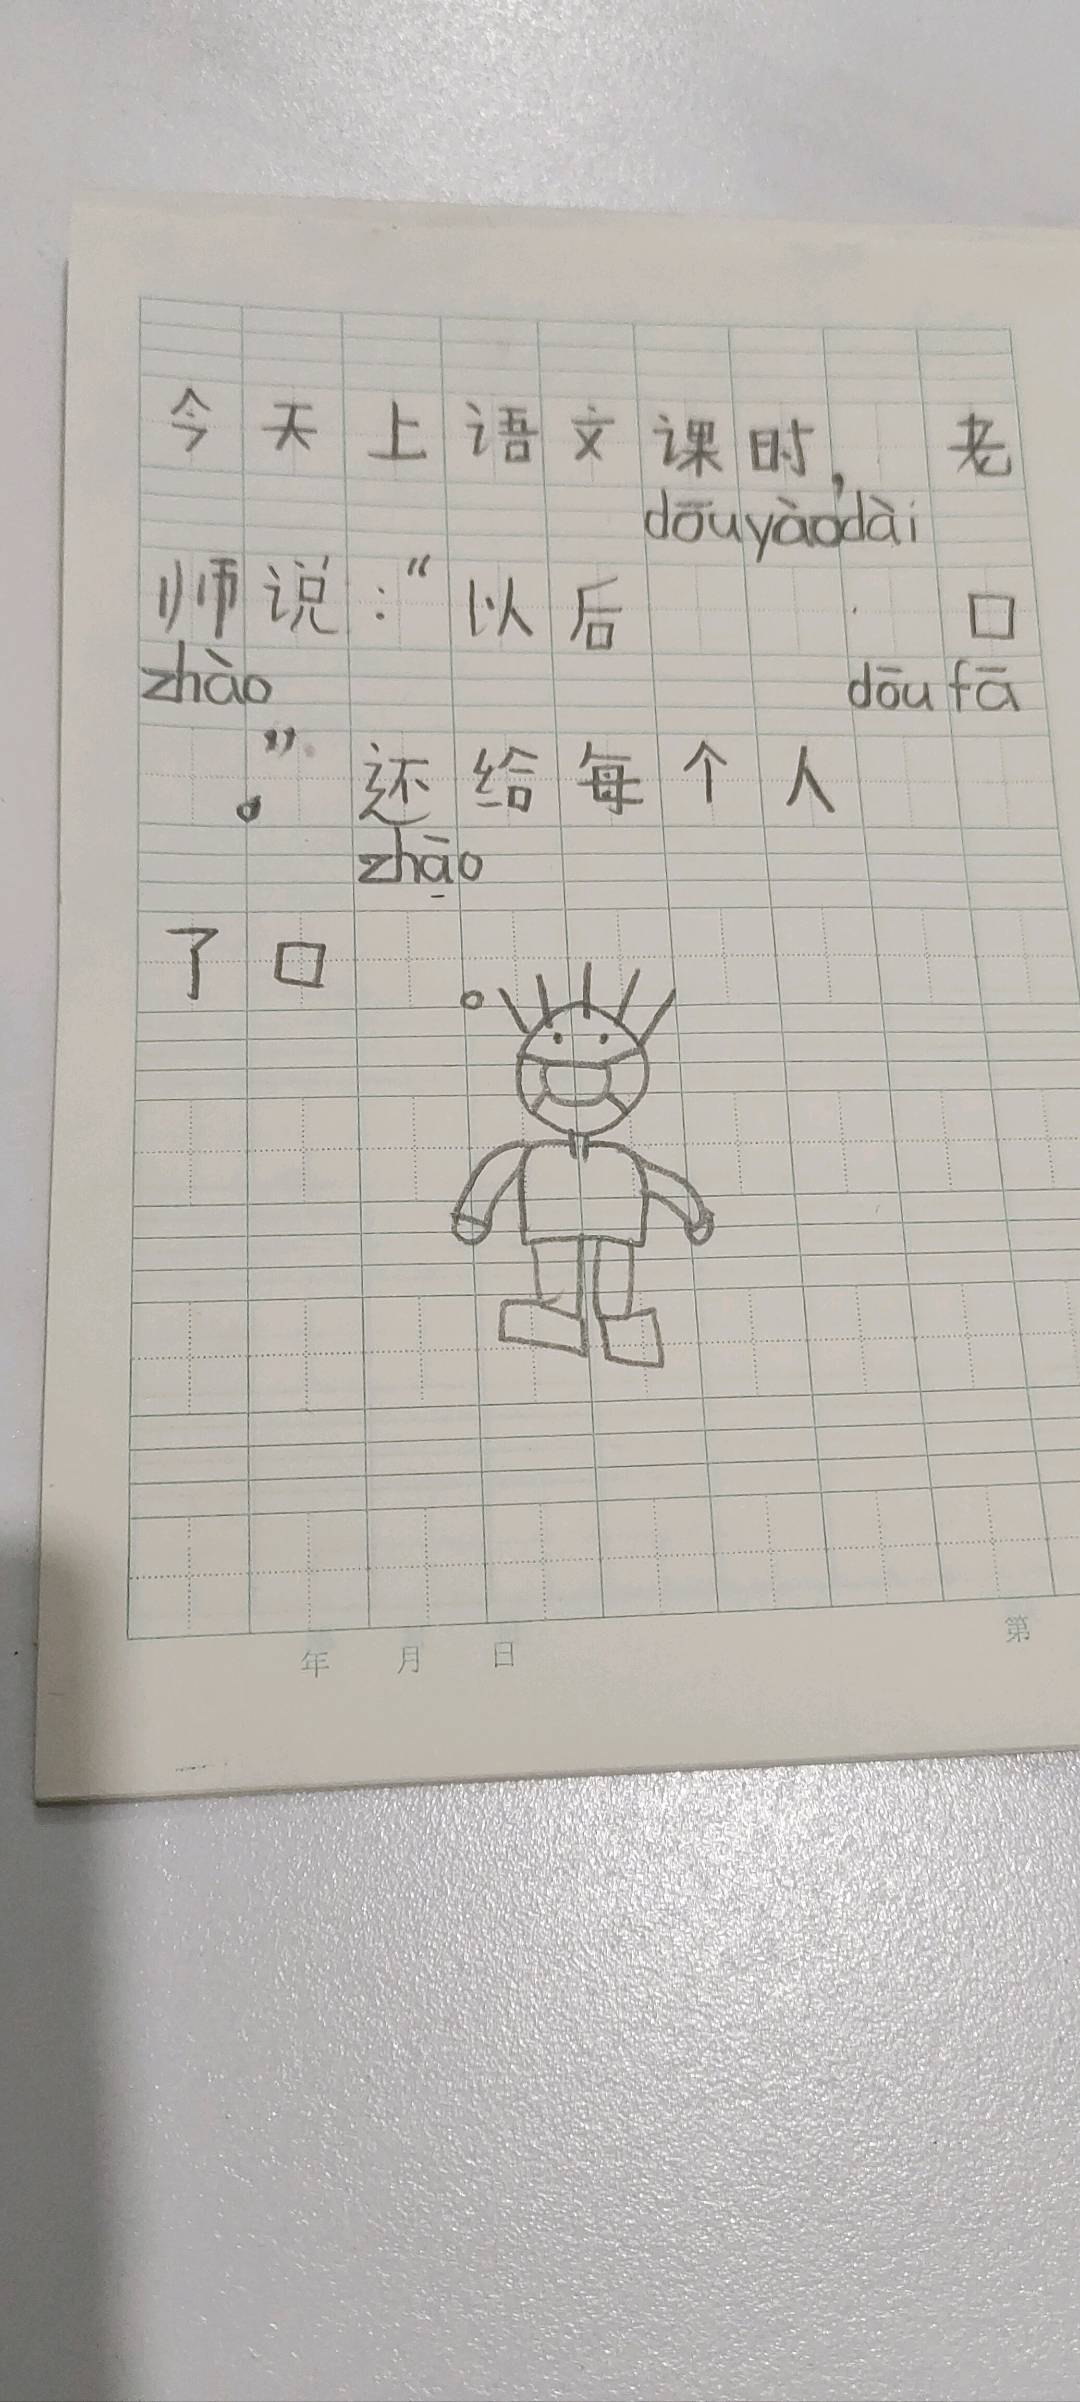 今天上语文课时，老
dōuyàodài
师说：“以后 口
zhào dōu fā
。”还给每个人
zhāo
了口 。
年 月 日 第